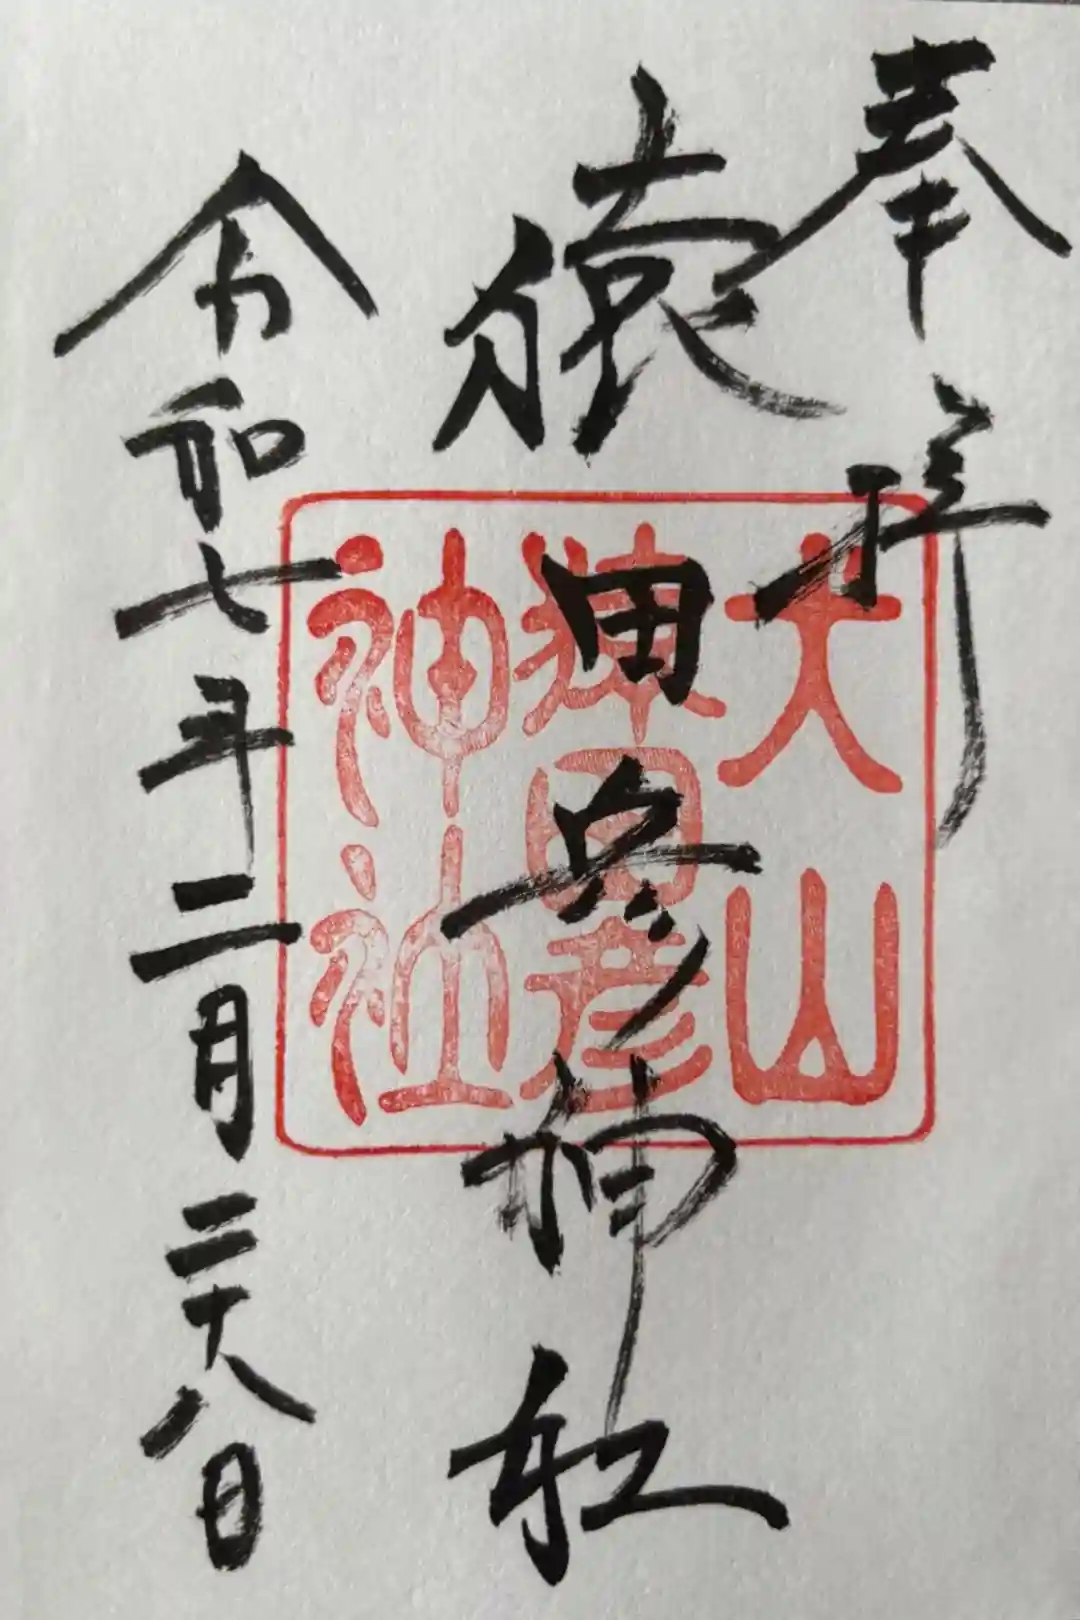 奉拝
猿田彦神社
令和七年二月二十八日
犬山
猿田彦
神社